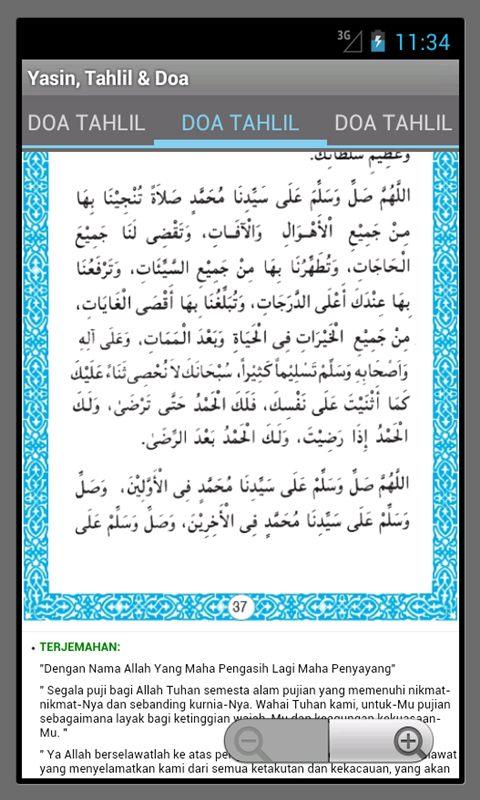 3G 11:34
Yasin, Tahlil & Doa
DOA TAHLIL DOA TAHLIL DOA TAHLIL
وَعَظِيْمِ سُلْطَانِكَ.
اَللّٰهُمَّ صَلِّ وَسَلِّمْ عَلَى سَيِّدِنَا مُحَمَّدٍ صَلَاةً تُنْجِيْنَا بِهَا
مِنْ جَمِيْعِ الْأَهْوَالِ وَالْآفَاتِ، وَتَقْضِى لَنَا جَمِيْعَ
الْحَاجَاتِ، وَتُطَهِّرُنَا بِهَا مِنْ جَمِيْعِ السَّيِّئَاتِ، وَتَرْفَعُنَا
بِهَا عِنْدَكَ أَعْلَى الدَّرَجَاتِ، وَتُبَلِّغُنَا بِهَا أَقْصَى الْغَايَاتِ،
مِنْ جَمِيْعِ الْخَيْرَاتِ فِى الْحَيَاةِ وَبَعْدَ الْمَمَاتِ، وَعَلَى آلِهِ
وَاَصْحَابِهِ وَسَلِّمْ تَسْلِيْمًا كَثِيْرًا، سُبْحَانَكَ لَا نُحْصِى ثَنَاءً عَلَيْكَ
كَمَا أَثْنَيْتَ عَلَى نَفْسِكَ، فَلَكَ الْحَمْدُ حَتَّى تَرْضَى، وَلَكَ
الْحَمْدُ إِذَا رَضِيْتَ، وَلَكَ الْحَمْدُ بَعْدَ الرِّضَى.
اَللّٰهُمَّ صَلِّ وَسَلِّمْ عَلَى سَيِّدِنَا مُحَمَّدٍ فِى الْأَوَّلِيْنَ، وَصَلِّ
وَسَلِّمْ عَلَى سَيِّدِنَا مُحَمَّدٍ فِى الْأَخِرِيْنَ، وَصَلِّ وَسَلِّمْ عَلَى
37
• TERJEMAHAN:
"Dengan Nama Allah Yang Maha Pengasih Lagi Maha Penyayang"
" Segala puji bagi Allah Tuhan semesta alam pujian yang memenuhi nikmat-
nikmat-Nya dan sebanding kurnia-Nya. Wahai Tuhan kami, untuk-Mu pujian
sebagaimana layak bagi ketinggian wajah-Mu dan keagungan kekuasaan-
Mu. "
" Ya Allah berselawatlah ke atas
yang menyelamatkan kami dari semua ketakutan dan kekacauan, yang akan